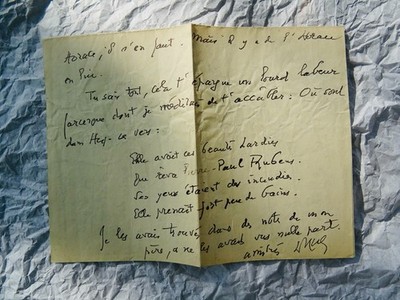 Horace, il s'en faut. Mais il y a de l'Horace
en lui.
Tu sais tout, cela t'épargne un lourd labeur
dont je méditais de t'accabler : Où sont
dans ce vers :
Elle avait ces beautés hardies
Que rêva Pierre-Paul Rubens.
Ses yeux étaient des incendies.
Elle prenait fort peu de bains.
Je les avais trouvés dans des notes de mon
père, a ne les avais vus nulle part.
amitiés